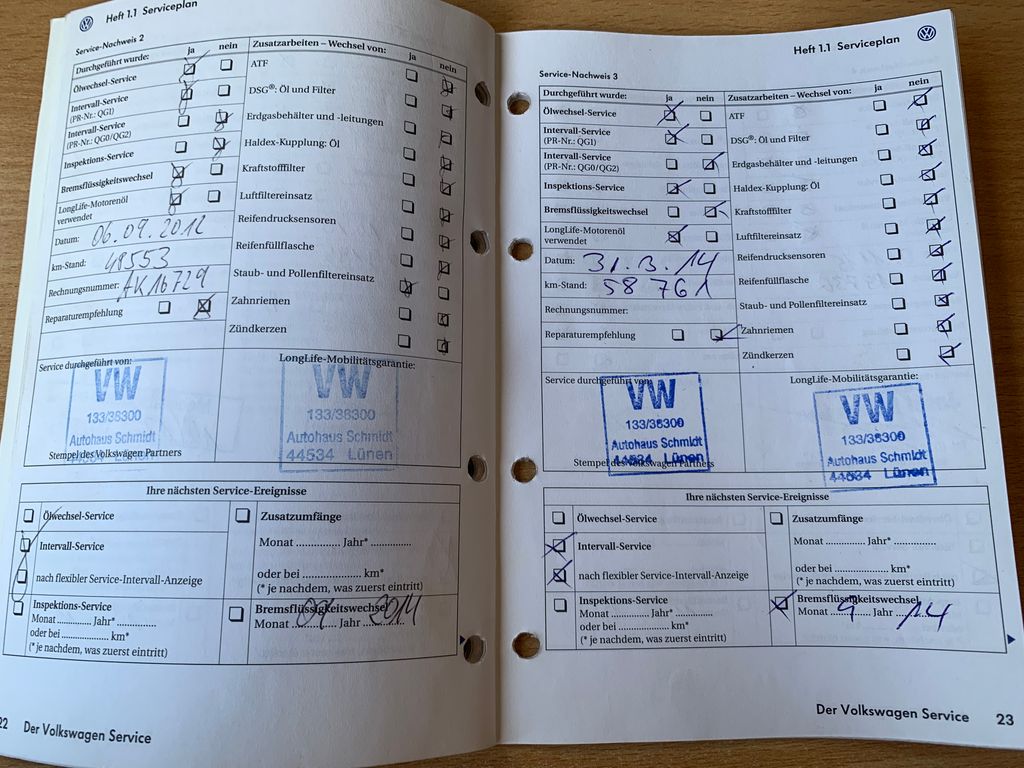 Heft 1.1 Serviceplan
Service-Nachweis 2
Durchgeführt wurde: ja nein
Ölwechsel-Service
Intervall-Service
(PR-Nr.: QG1)
Intervall-Service
(PR-Nr.: QG0/QG2)
Inspektions-Service
Bremsflüssigkeitswechsel
LongLife-Motorenöl
verwendet
Datum: 06.09.2012
km-Stand: 48553
Rechnungsnummer: AK16729
Reparaturempfehlung
Zusatzarbeiten – Wechsel von: ja nein
ATF
DSG®: Öl und Filter
Erdgasbehälter und -leitungen
Haldex-Kupplung: Öl
Kraftstofffilter
Luftfiltereinsatz
Reifendrucksensoren
Reifenfüllflasche
Staub- und Pollenfiltereinsatz
Zahnriemen
Zündkerzen
Service durchgeführt von:
VW
133/38300
Autohaus Schmidt
44534 Lünen
Stempel des Volkswagen Partners
LongLife-Mobilitätsgarantie:
VW
133/38300
Autohaus Schmidt
44534 Lünen
Ihre nächsten Service-Ereignisse
Ölwechsel-Service
Intervall-Service
nach flexibler Service-Intervall-Anzeige
Inspektions-Service
Monat ............ Jahr* ............
oder bei .................. km*
(* je nachdem, was zuerst eintritt)
Zusatzumfänge
Monat ............. Jahr* .............
oder bei .................. km*
(* je nachdem, was zuerst eintritt)
Bremsflüssigkeitswechsel
Monat 09 Jahr 2014
22 Der Volkswagen Service
Heft 1.1 Serviceplan
Service-Nachweis 3
Durchgeführt wurde: ja nein
Ölwechsel-Service
Intervall-Service
(PR-Nr.: QG1)
Intervall-Service
(PR-Nr.: QG0/QG2)
Inspektions-Service
Bremsflüssigkeitswechsel
LongLife-Motorenöl
verwendet
Datum: 31.3.14
km-Stand: 58 761
Rechnungsnummer:
Reparaturempfehlung
Zusatzarbeiten – Wechsel von: ja nein
ATF
DSG®: Öl und Filter
Erdgasbehälter und -leitungen
Haldex-Kupplung: Öl
Kraftstofffilter
Luftfiltereinsatz
Reifendrucksensoren
Reifenfüllflasche
Staub- und Pollenfiltereinsatz
Zahnriemen
Zündkerzen
Service durchgeführt von:
VW
133/38300
Autohaus Schmidt
44534 Lünen
Stempel des Volkswagen Partners
LongLife-Mobilitätsgarantie:
VW
133/38300
Autohaus Schmidt
44534 Lünen
Ihre nächsten Service-Ereignisse
Ölwechsel-Service
Intervall-Service
nach flexibler Service-Intervall-Anzeige
Inspektions-Service
Monat ............ Jahr* ............
oder bei .................. km*
(* je nachdem, was zuerst eintritt)
Zusatzumfänge
Monat ............. Jahr* .............
oder bei .................. km*
(* je nachdem, was zuerst eintritt)
Bremsflüssigkeitswechsel
Monat 9 Jahr 14
Der Volkswagen Service 23